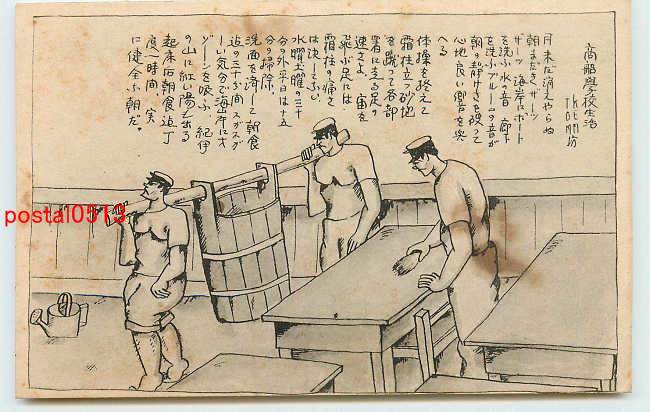 商船學校生活
月末だ消えやらぬ
朝まだきザーッ
ザーッ 海岸はボート
を洗ふ水の音 廊下
を洗ふブルームの音が
朝の静けさを破って
心地良い響きを與
へる
体操を終えて
霜柱立つ砂地
を蹴って各部
署に走る足の
速さよ、宙を
飛ぶ足には
霜柱の痛さ
は決してない。
水曜土曜の三十
分の外平日は十五
分の掃除。
洗面を済して朝食
迄の三十分間 スガスガ
しい気分で海岸にオ
ゾーンを吸ふ 紀伊
の山に紅い陽も出る
起床后朝食迄丁
度一時間、実
に健全な朝だ。
postal0513